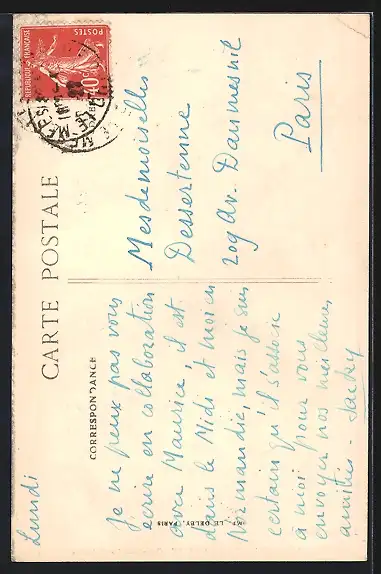 CARTE POSTALE
CORRESPONDANCE
REPUBLIQUE FRANÇAISE
POSTES
40c
Lundi
Je ne peux pas vous
écrire en collaboration
avec Maurice, il est
dans le Midi et moi en
Normandie, mais je suis
certain qu'il s'associe
à moi pour vous
envoyer nos meilleures
amitiés - Jacky
Mesdemoiselles
Dessertenne
209 Av. Daumesnil
Paris
IMP. LE DELEY, PARIS